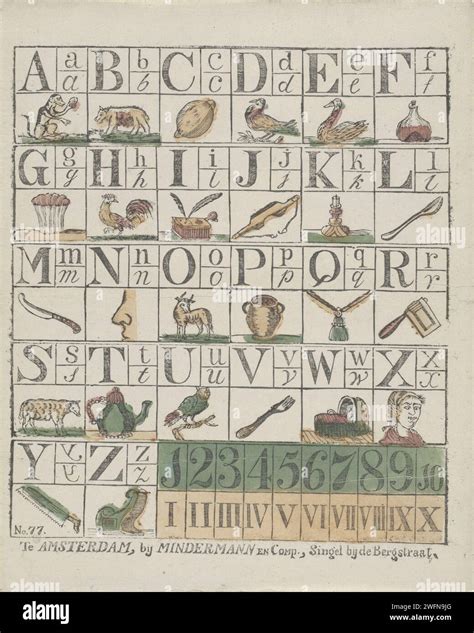 A a B b C c D d E e F f
a b c d e f
G g H h I i J j K k L l
g h i j k l
M m N n O o P p Q q R r
m n o p q r
S s T t U u V v W w X x
s t u v w x
Y y Z z 1 2 3 4 5 6 7 8 9 10
y z
I II III IV V VI VII VIII IX X
No. 77.
Te AMSTERDAM, by MINDERMANN EN COMP., Singel bij de Bergstraat.
alamy
Image ID: 2WFN9JG
www.alamy.com